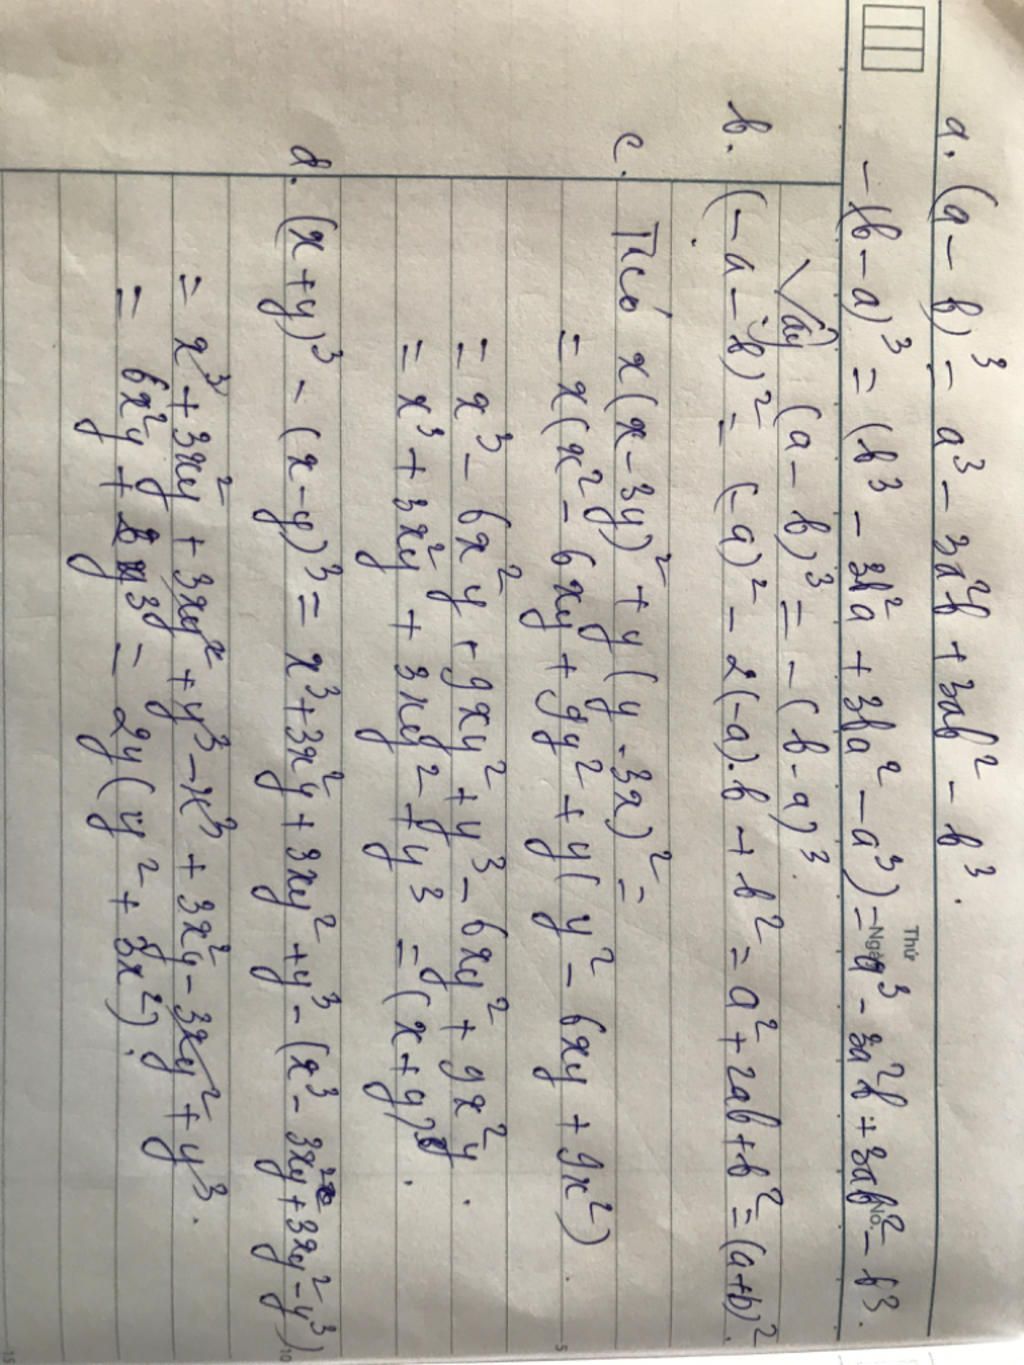 a. (a - b)³ = a³ - 3a²b + 3ab² - b³.
Thứ
Ngày
No.
- (b - a)³ = (b³ - 3b²a + 3ba² - a³) = a³ - 3a²b + 3ab² - b³.
Vậy (a - b)³ = - (b - a)³.
b. (- a - b)² = (-a)² - 2(-a).b + b² = a² + 2ab + b² = (a+b)².
c. Theo x(x - 3y)² + y(y - 3x)² =
= x(x² - 6xy + 9y² + y(y² - 6xy + 9x²).
5
= x³ - 6x²y + 9xy² + y³ - 6xy² + 9x²y.
= x³ + 3x²y + 3xy² + y³ = (x + y)³.
d. (x + y)³ - (x - y)³ = x³ + 3x²y + 3xy² + y³ - (x³ - 3x²y + 3xy² - y³)
10
= x³ + 3x²y + 3xy² + y³ - x³ + 3x²y - 3xy² + y³.
= 6x²y + 2y³ = 2y(y² + 3x²).
15